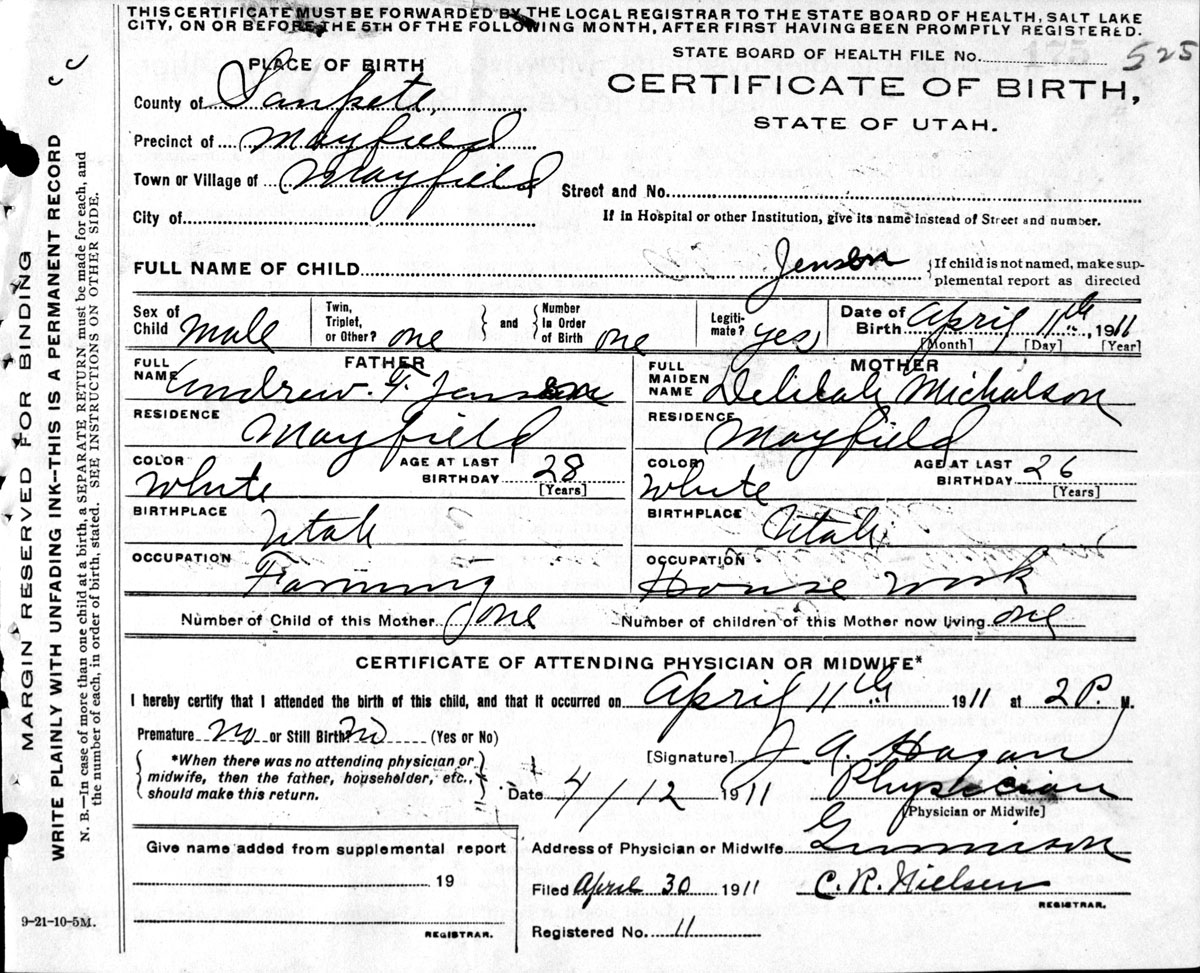 THIS CERTIFICATE MUST BE FORWARDED BY THE LOCAL REGISTRAR TO THE STATE BOARD OF HEALTH, SALT LAKE
CITY, ON OR BEFORE THE 5TH OF THE FOLLOWING MONTH, AFTER FIRST HAVING BEEN PROMPTLY REGISTERED.
STATE BOARD OF HEALTH FILE NO. 525
PLACE OF BIRTH
CERTIFICATE OF BIRTH,
STATE OF UTAH.
County of Sanpete,
Precinct of Mayfield
Town or Village of Mayfield Street and No.
City of If in Hospital or other Institution, give its name instead of Street and number.
FULL NAME OF CHILD Jenson {If child is not named, make sup-
plemental report as directed
Sex of Child Male Twin, Triplet, or Other? one } and { Number In Order of Birth one Legiti-mate? yes Date of Birth April 11th, 1911
[Month] [Day] [Year]
FATHER MOTHER
FULL NAME Andrew. F. Jenson FULL MAIDEN NAME Delilah Michalson
RESIDENCE Mayfield RESIDENCE Mayfield
COLOR White AGE AT LAST BIRTHDAY 28 [Years] COLOR White AGE AT LAST BIRTHDAY 26 [Years]
BIRTHPLACE Utah BIRTHPLACE Utah
OCCUPATION Farming OCCUPATION House work
Number of Child of this Mother one Number of children of this Mother now living one
CERTIFICATE OF ATTENDING PHYSICIAN OR MIDWIFE*
I hereby certify that I attended the birth of this child, and that it occurred on April 11th 1911 at 2 P. M.
Premature no or Still Birth? no (Yes or No)
{ *When there was no attending physician or
midwife, then the father, householder, etc.,
should make this return. }
[Signature] J. A. Hagan
Date 4/12 1911 Physician
[Physician or Midwife]
Give name added from supplemental report
19
REGISTRAR.
Address of Physician or Midwife Gunnison
Filed April 30 1911 C. R. Nielsen
REGISTRAR.
Registered No. 11
9-21-10-5M.
MARGIN RESERVED FOR BINDING
WRITE PLAINLY WITH UNFADING INK—THIS IS A PERMANENT RECORD
N. B.—In case of more than one child at a birth, a SEPARATE RETURN must be made for each, and
the number of each, in order of birth, stated. SEE INSTRUCTIONS ON OTHER SIDE.